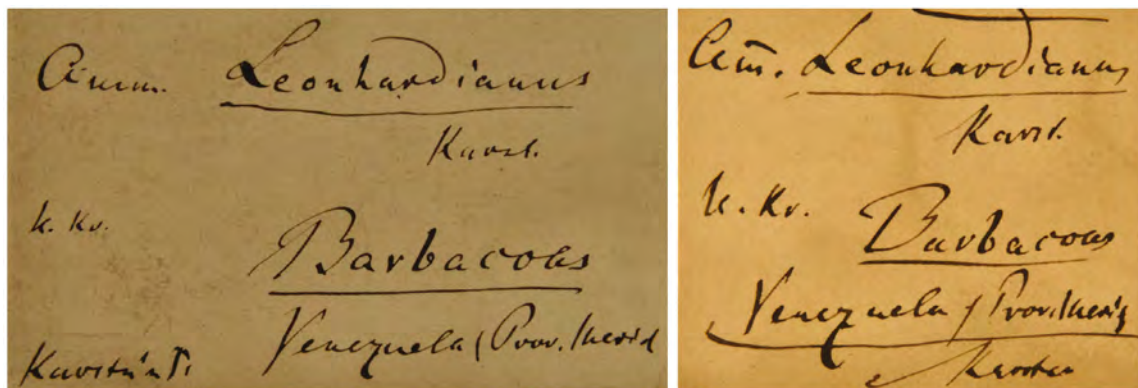 Amm. Leonhardianus
Karst.
u. Kr.
Barbacoas
Venezuela (Prov. Merid
Am̅. Leonhardianus
Karst.
u. Kr.
Barbacoas
Venezuela (Prov. Merid
Karsten